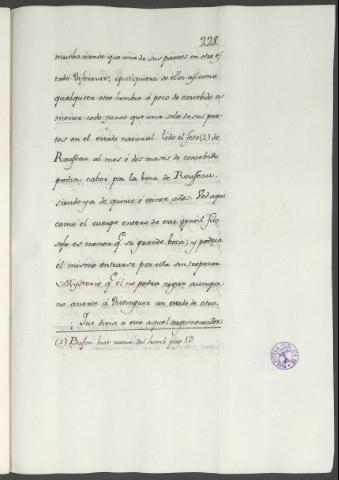 228
mucho menor que una de sus partes en otro es
tado diferente; qualquiera de ellos asi como
qualquier otro hombre á poco de concebido es
menor todo junto que una sola de sus par
tes en el estado natural. Todo el feto (1) de
Rousseau al mes ó dos meses de concebido
podia caber por la boca de Rousseau,
siendo ya de quince ó veinte años. Ved aqui
como el cuerpo entero de este gentil filo
sofo es menor q.e su grande boca; y podria
él mismo entrarse por ella sin tropezar.
Mysterio q.e él no podrá negar aunque
no acierte á distinguir un estado de otro.
¡ Que diria á esto aquel argumentador
(1) Buffon hist. natur. del homb. pag. 13